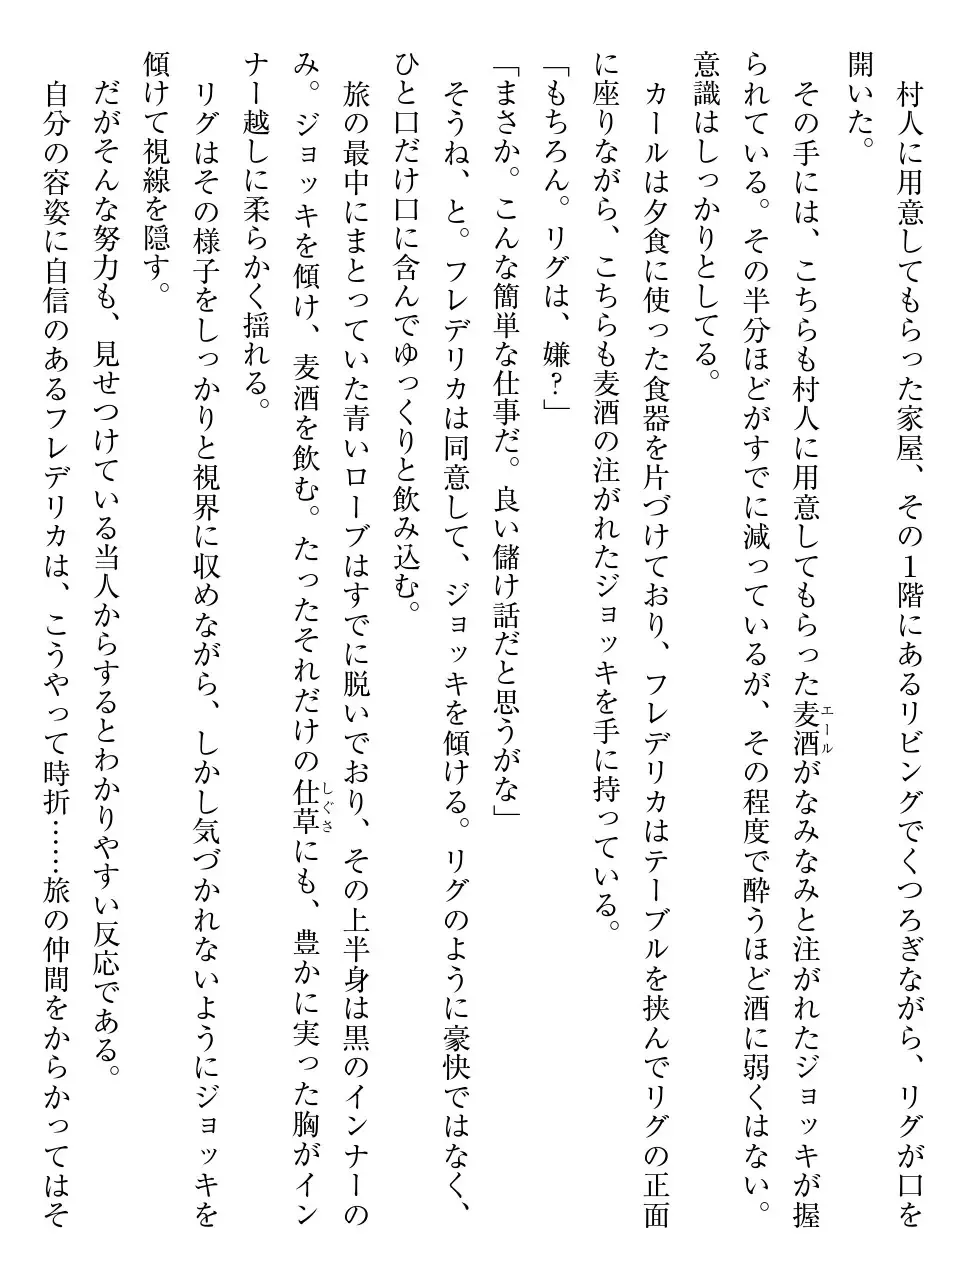 村人に用意してもらった家屋、その１階にあるリビングでくつろぎながら、リグが口を
開いた。
その手には、こちらも村人に用意してもらった麦酒がなみなみと注がれたジョッキが握
エール
られている。その半分ほどがすでに減っているが、その程度で酔うほど酒に弱くはない。
意識はしっかりとしてる。
カールは夕食に使った食器を片づけており、フレデリカはテーブルを挟んでリグの正面
に座りながら、こちらも麦酒の注がれたジョッキを手に持っている。
「もちろん。リグは、嫌？」
「まさか。こんな簡単な仕事だ。良い儲け話だと思うがな」
そうね、と。フレデリカは同意して、ジョッキを傾ける。リグのように豪快ではなく、
ひと口だけ口に含んでゆっくりと飲み込む。
旅の最中にまとっていた青いローブはすでに脱いでおり、その上半身は黒のインナーの
み。ジョッキを傾け、麦酒を飲む。たったそれだけの仕草にも、豊かに実った胸がイン
しぐさ
ナー越しに柔らかく揺れる。
リグはその様子をしっかりと視界に収めながら、しかし気づかれないようにジョッキを
傾けて視線を隠す。
だがそんな努力も、見せつけている当人からするとわかりやすい反応である。
自分の容姿に自信のあるフレデリカは、こうやって時折……旅の仲間をからかってはそ